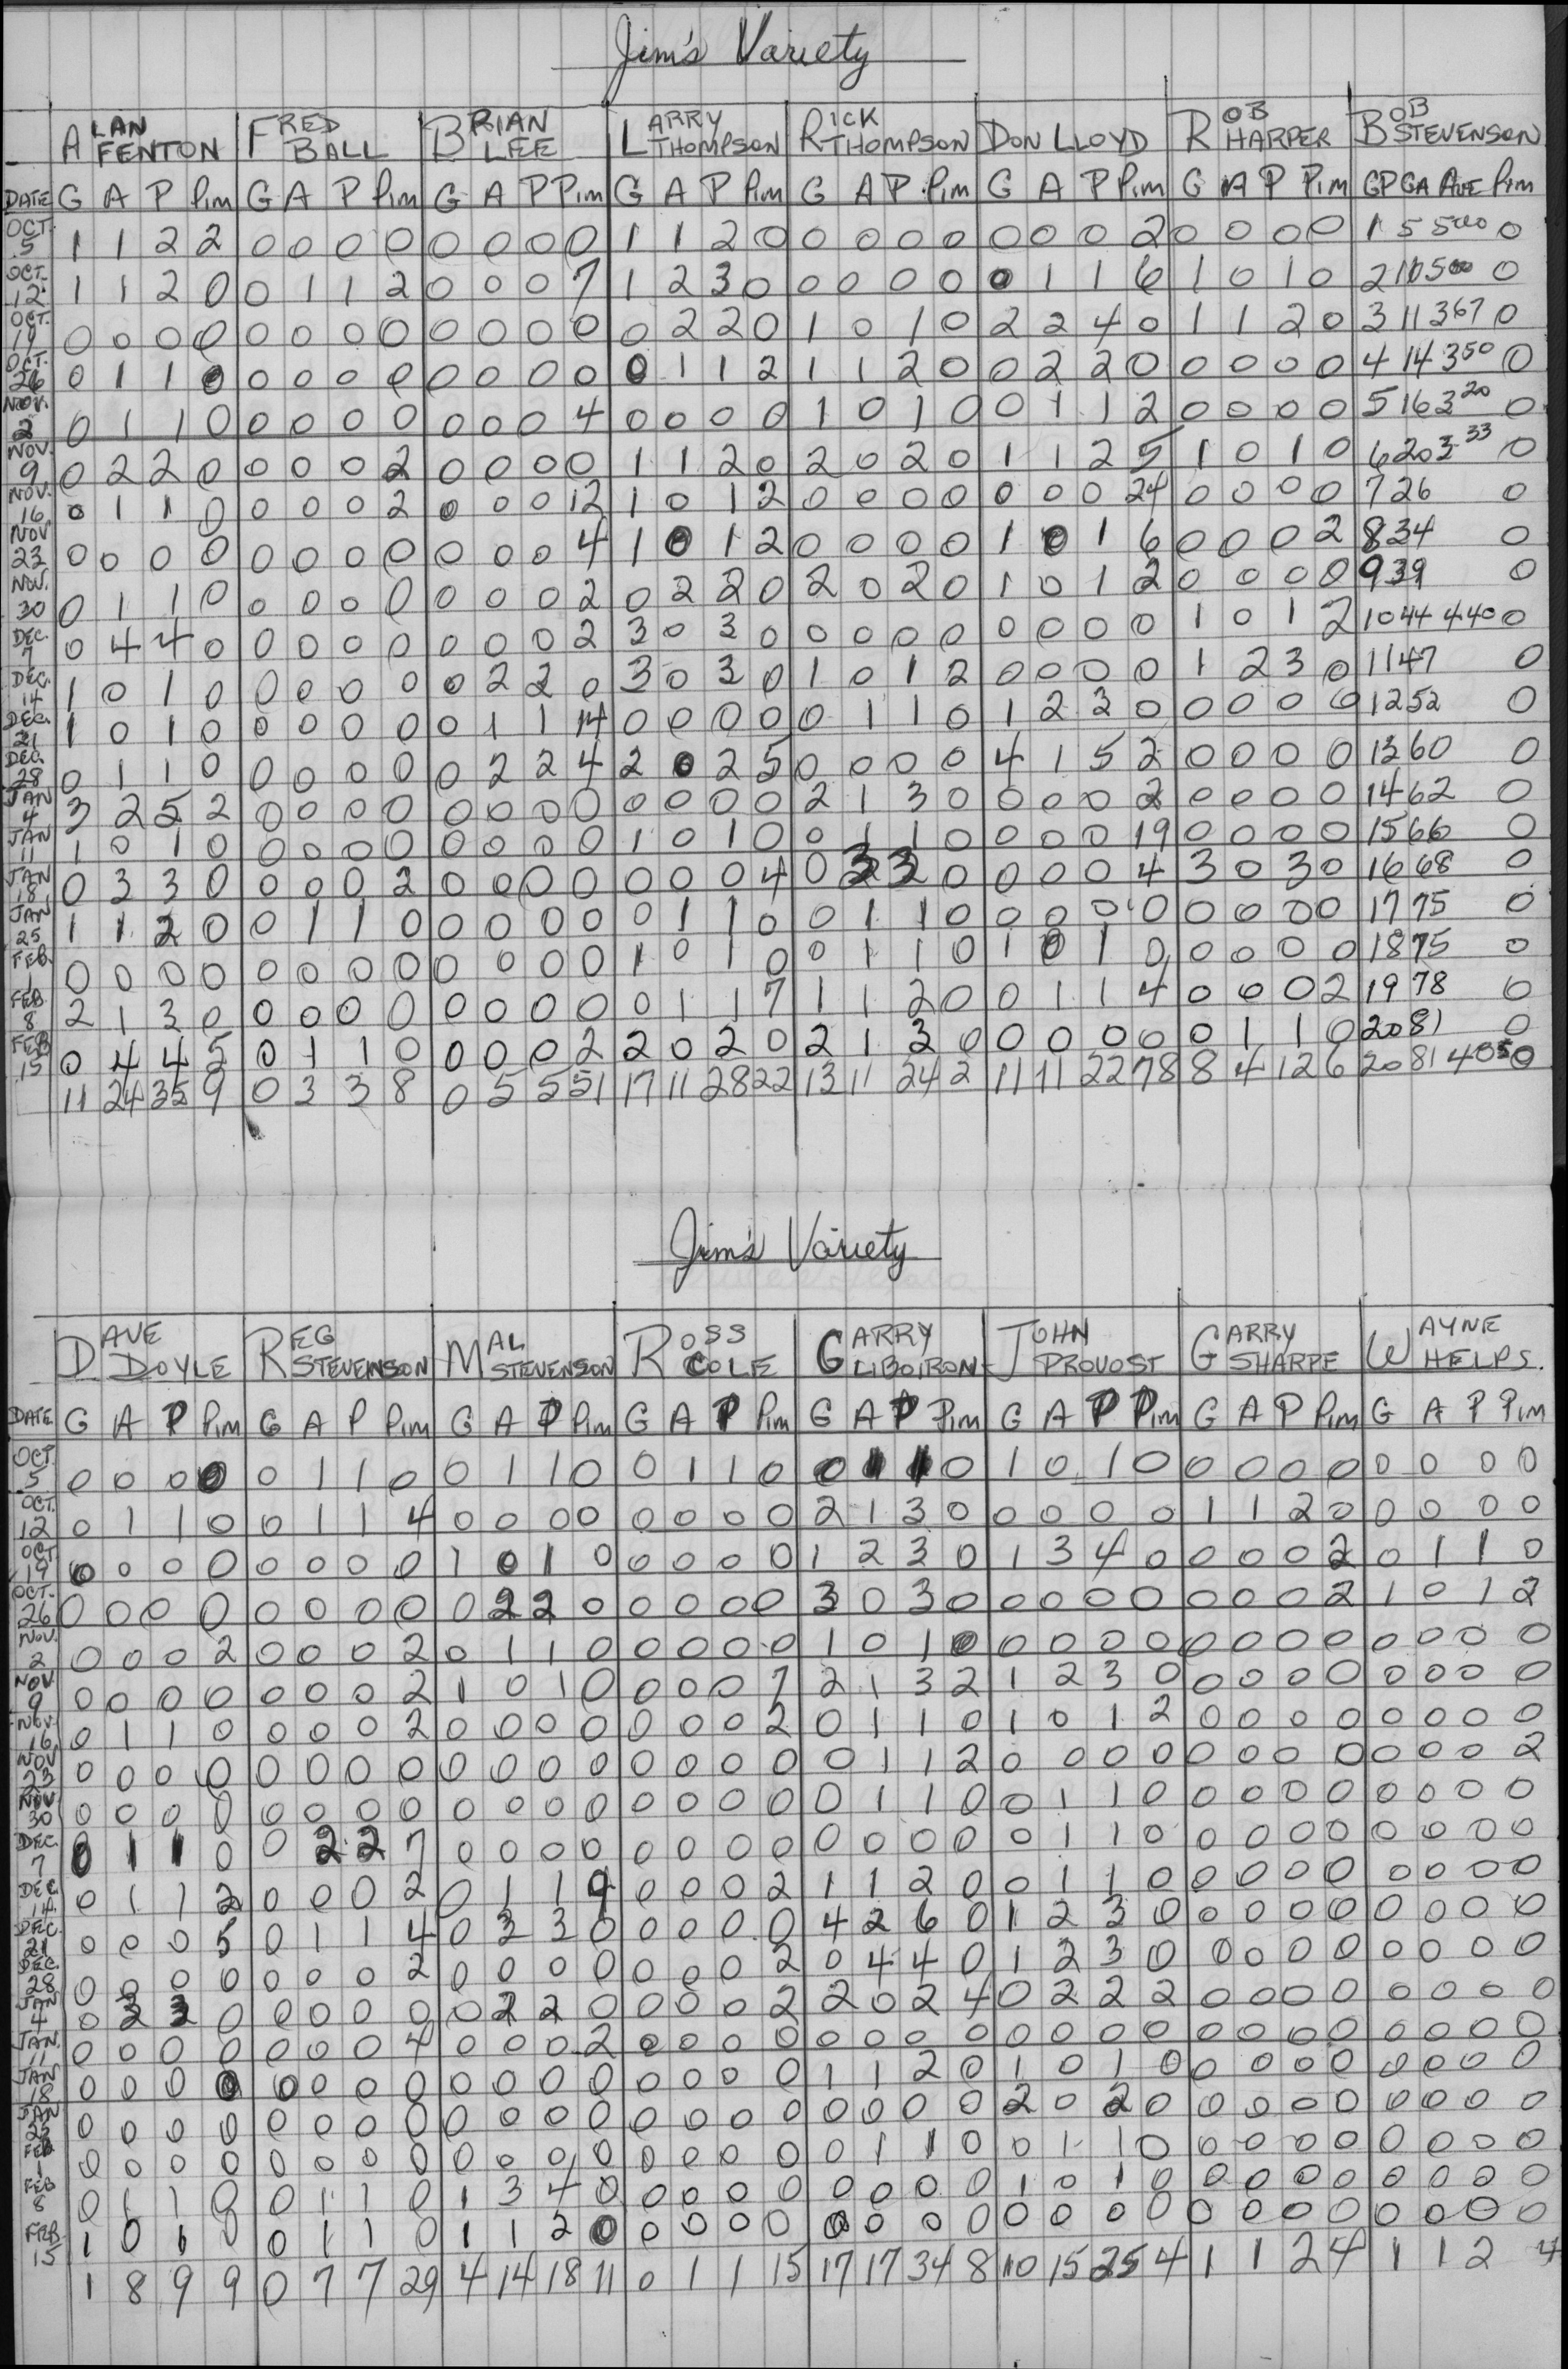 Jim's Variety
ALAN FENTON FRED BALL BRIAN LEE LARRY THOMPSON RICK THOMPSON DON LLOYD ROB HARPER BOB STEVENSON
DATE G A P Pim G A P Pim G A P Pim G A P Pim G A P Pim G A P Pim G A P Pim GP GA AVE Pim
OCT. 5 1 1 2 2 0 0 0 0 0 0 0 0 1 1 2 0 0 0 0 0 0 0 0 2 0 0 0 0 1 5 500 0
OCT. 12 1 1 2 0 0 1 1 2 0 0 0 7 1 2 3 0 0 0 0 0 0 1 1 6 1 0 1 0 2 10 500 0
OCT. 19 0 0 0 0 0 0 0 0 0 0 0 0 0 2 2 0 1 0 1 0 2 2 4 0 1 1 2 0 3 11 367 0
OCT. 26 0 1 1 0 0 0 0 0 0 0 0 0 0 1 1 2 1 1 2 0 0 2 2 0 0 0 0 0 4 14 350 0
NOV. 2 0 1 1 0 0 0 0 0 0 0 0 4 0 0 0 0 1 0 1 0 0 1 1 2 0 0 0 0 5 16 320 0
NOV. 9 0 2 2 0 0 0 0 2 0 0 0 0 1 1 2 0 2 0 2 0 1 1 2 5 1 0 1 0 6 20 333 0
NOV. 16 0 1 1 0 0 0 0 2 0 0 0 12 1 0 1 2 0 0 0 0 0 0 0 24 0 0 0 0 7 26 0
NOV 23 0 0 0 0 0 0 0 0 0 0 0 4 1 0 1 2 0 0 0 0 1 0 1 6 0 0 0 2 8 34 0
NOV. 30 0 1 1 0 0 0 0 0 0 0 0 2 0 2 2 0 2 0 2 0 1 0 1 2 0 0 0 0 9 39 0
DEC. 7 0 4 4 0 0 0 0 0 0 0 0 2 3 0 3 0 0 0 0 0 0 0 0 0 1 0 1 2 10 44 440 0
DEC. 14 1 0 1 0 0 0 0 0 0 2 2 0 3 0 3 0 1 0 1 2 0 0 0 0 1 2 3 0 11 47 0
DEC. 21 1 0 1 0 0 0 0 0 0 1 1 14 0 0 0 0 0 1 1 0 1 2 3 0 0 0 0 0 12 52 0
DEC. 28 0 1 1 0 0 0 0 0 0 2 2 4 2 0 2 5 0 0 0 0 4 1 5 2 0 0 0 0 13 60 0
JAN 4 3 2 5 2 0 0 0 0 0 0 0 0 0 0 0 0 2 1 3 0 0 0 0 2 0 0 0 0 14 62 0
JAN 11 1 0 1 0 0 0 0 0 0 0 0 0 1 0 1 0 0 1 1 0 0 0 0 19 0 0 0 0 15 66 0
JAN 18 0 3 3 0 0 0 0 2 0 0 0 0 0 0 0 4 0 3 3 0 0 0 0 4 3 0 3 0 16 68 0
JAN 25 1 1 2 0 0 1 1 0 0 0 0 0 0 1 1 0 0 1 1 0 0 0 0 0 0 0 0 0 17 75 0
FEB. 1 0 0 0 0 0 0 0 0 0 0 0 0 1 0 1 0 0 1 1 0 1 0 1 0 0 0 0 0 18 75 0
FEB. 8 2 1 3 0 0 0 0 0 0 0 0 0 0 1 1 7 1 1 2 0 0 1 1 4 0 0 0 2 19 78 0
FEB 15 0 4 4 5 0 1 1 0 0 0 0 2 2 0 2 0 2 1 3 0 0 0 0 0 0 1 1 0 20 81 0
11 24 35 9 0 3 3 8 0 5 5 51 17 11 28 22 13 11 24 2 11 11 22 78 8 4 12 6 20 81 405 0
Jim's Variety
DAVE DOYLE REG STEVENSON MAL STEVENSON ROSS COLE GARRY LIBOIRON JOHN PROVOST GARRY SHARPE WAYNE HELPS.
DATE G A P Pim G A P Pim G A P Pim G A P Pim G A P Pim G A P Pim G A P Pim G A P Pim
OCT. 5 0 0 0 0 0 1 1 0 0 1 1 0 0 1 1 0 0 1 1 0 1 0 1 0 0 0 0 0 0 0 0 0
OCT. 12 0 1 1 0 0 1 1 4 0 0 0 0 0 0 0 0 2 1 3 0 0 0 0 0 1 1 2 0 0 0 0 0
OCT 19 0 0 0 0 0 0 0 0 1 0 1 0 0 0 0 0 1 2 3 0 1 3 4 0 0 0 0 2 0 1 1 0
OCT. 26 0 0 0 0 0 0 0 0 0 2 2 0 0 0 0 0 3 0 3 0 0 0 0 0 0 0 0 2 1 0 1 2
NOV. 2 0 0 0 2 0 0 0 2 0 1 1 0 0 0 0 0 1 0 1 0 0 0 0 0 0 0 0 0 0 0 0 0
NOV 9 0 0 0 0 0 0 0 2 1 0 1 0 0 0 0 7 2 1 3 2 1 2 3 0 0 0 0 0 0 0 0 0
NOV. 16 0 1 1 0 0 0 0 2 0 0 0 0 0 0 0 2 0 1 1 0 1 0 1 2 0 0 0 0 0 0 0 0
NOV 23 0 0 0 0 0 0 0 0 0 0 0 0 0 0 0 0 0 1 1 2 0 0 0 0 0 0 0 0 0 0 0 2
NOV 30 0 0 0 0 0 0 0 0 0 0 0 0 0 0 0 0 0 1 1 0 0 1 1 0 0 0 0 0 0 0 0 0
DEC. 7 0 1 1 0 0 2 2 7 0 0 0 0 0 0 0 0 0 0 0 0 0 1 1 0 0 0 0 0 0 0 0 0
DEC. 14 0 1 1 2 0 0 0 2 0 1 1 9 0 0 0 2 1 1 2 0 0 1 1 0 0 0 0 0 0 0 0 0
DEC. 21 0 0 0 5 0 1 1 4 0 3 3 0 0 0 0 0 4 2 6 0 1 2 3 0 0 0 0 0 0 0 0 0
DEC. 28 0 0 0 0 0 0 0 2 0 0 0 0 0 0 0 2 0 4 4 0 1 2 3 0 0 0 0 0 0 0 0 0
JAN 4 0 3 3 0 0 0 0 0 0 2 2 0 0 0 0 2 2 0 2 4 0 2 2 2 0 0 0 0 0 0 0 0
JAN. 11 0 0 0 0 0 0 0 4 0 0 0 2 0 0 0 0 0 0 0 0 0 0 0 0 0 0 0 0 0 0 0 0
JAN 18 0 0 0 0 0 0 0 0 0 0 0 0 0 0 0 0 1 1 2 0 1 0 1 0 0 0 0 0 0 0 0 0
JAN 25 0 0 0 0 0 0 0 0 0 0 0 0 0 0 0 0 0 0 0 0 2 0 2 0 0 0 0 0 0 0 0 0
FEB 1 0 0 0 0 0 0 0 0 0 0 0 0 0 0 0 0 0 1 1 0 0 1 1 0 0 0 0 0 0 0 0 0
FEB 8 0 1 1 0 0 1 1 0 1 3 4 0 0 0 0 0 0 0 0 0 1 0 1 0 0 0 0 0 0 0 0 0
FEB. 15 1 0 1 0 0 1 1 0 1 1 2 0 0 0 0 0 0 0 0 0 0 0 0 0 0 0 0 0 0 0 0 0
1 8 9 9 0 7 7 29 4 14 18 11 0 1 1 15 17 17 34 8 10 15 25 4 1 1 2 4 1 1 2 4